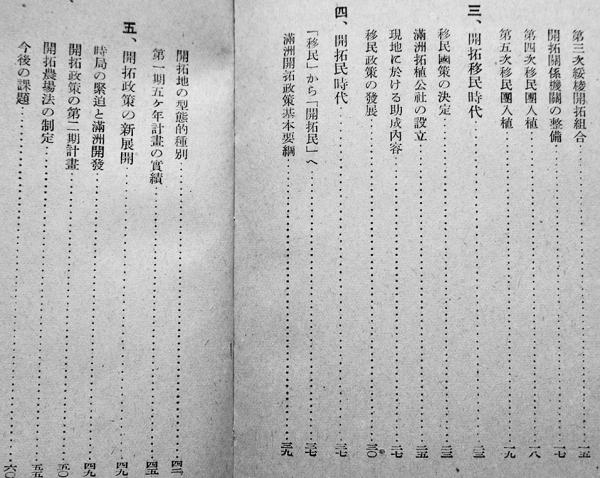 第三次綏稜開拓組合……一五
開拓關係機關の整備……一七
第四次移民團入植……一八
第五次移民團入植……一九
三、開拓移民時代……二三
移民國策の決定……二三
滿洲拓植公社の設立……二五
現地に於ける助成內容……二七
移民政策の發展……三〇
四、開拓民時代……三七
「移民」から「開拓民」へ……三七
滿洲開拓政策基本要綱……三九
開拓地の型態的種別……四二
第一期五ケ年計畫の實績……四五
五、開拓政策の新展開……四九
時局の緊迫と滿洲開發……四九
開拓政策の第二期計畫……五〇
開拓農場法の制定……五五
今後の課題……六〇